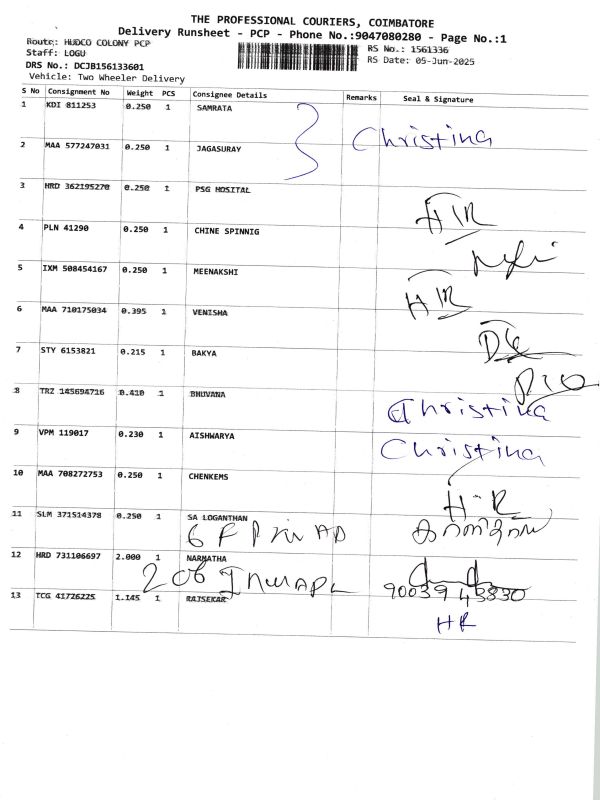 THE PROFESSIONAL COURIERS, COIMBATORE
Delivery Runsheet - PCP - Phone No.:9047080280 - Page No.:1
Route: HUDCO COLONY PCP
RS No.: 1561336
Staff: LOGU
RS Date: 05-Jun-2025
DRS No.: DCJB156133601
Vehicle: Two Wheeler Delivery
S No Consignment No Weight PCS Consignee Details Remarks Seal & Signature
1 KDI 811253 0.250 1 SAMRATA
Christina
2 MAA 577247031 0.250 1 JAGASURAY
3 HRD 362195270 0.250 1 PSG HOSITAL
HR
4 PLN 41290 0.250 1 CHINE SPINNIG
5 IXM 508454167 0.250 1 MEENAKSHI
HR
6 MAA 710175034 0.395 1 VENISHA
7 STY 6153821 0.215 1 BAKYA
8 TRZ 145694716 0.410 1 BHUVANA
Christina
9 VPM 119017 0.230 1 AISHWARYA
Christina
10 MAA 708272753 0.250 1 CHENKEMS
H-R
11 SLM 371514378 0.250 1 SA LOGANTHAN
12 HRD 731106697 2.000 1 NARMATHA
206
13 TCG 41726225 1.145 1 RAJSEKAR
HR